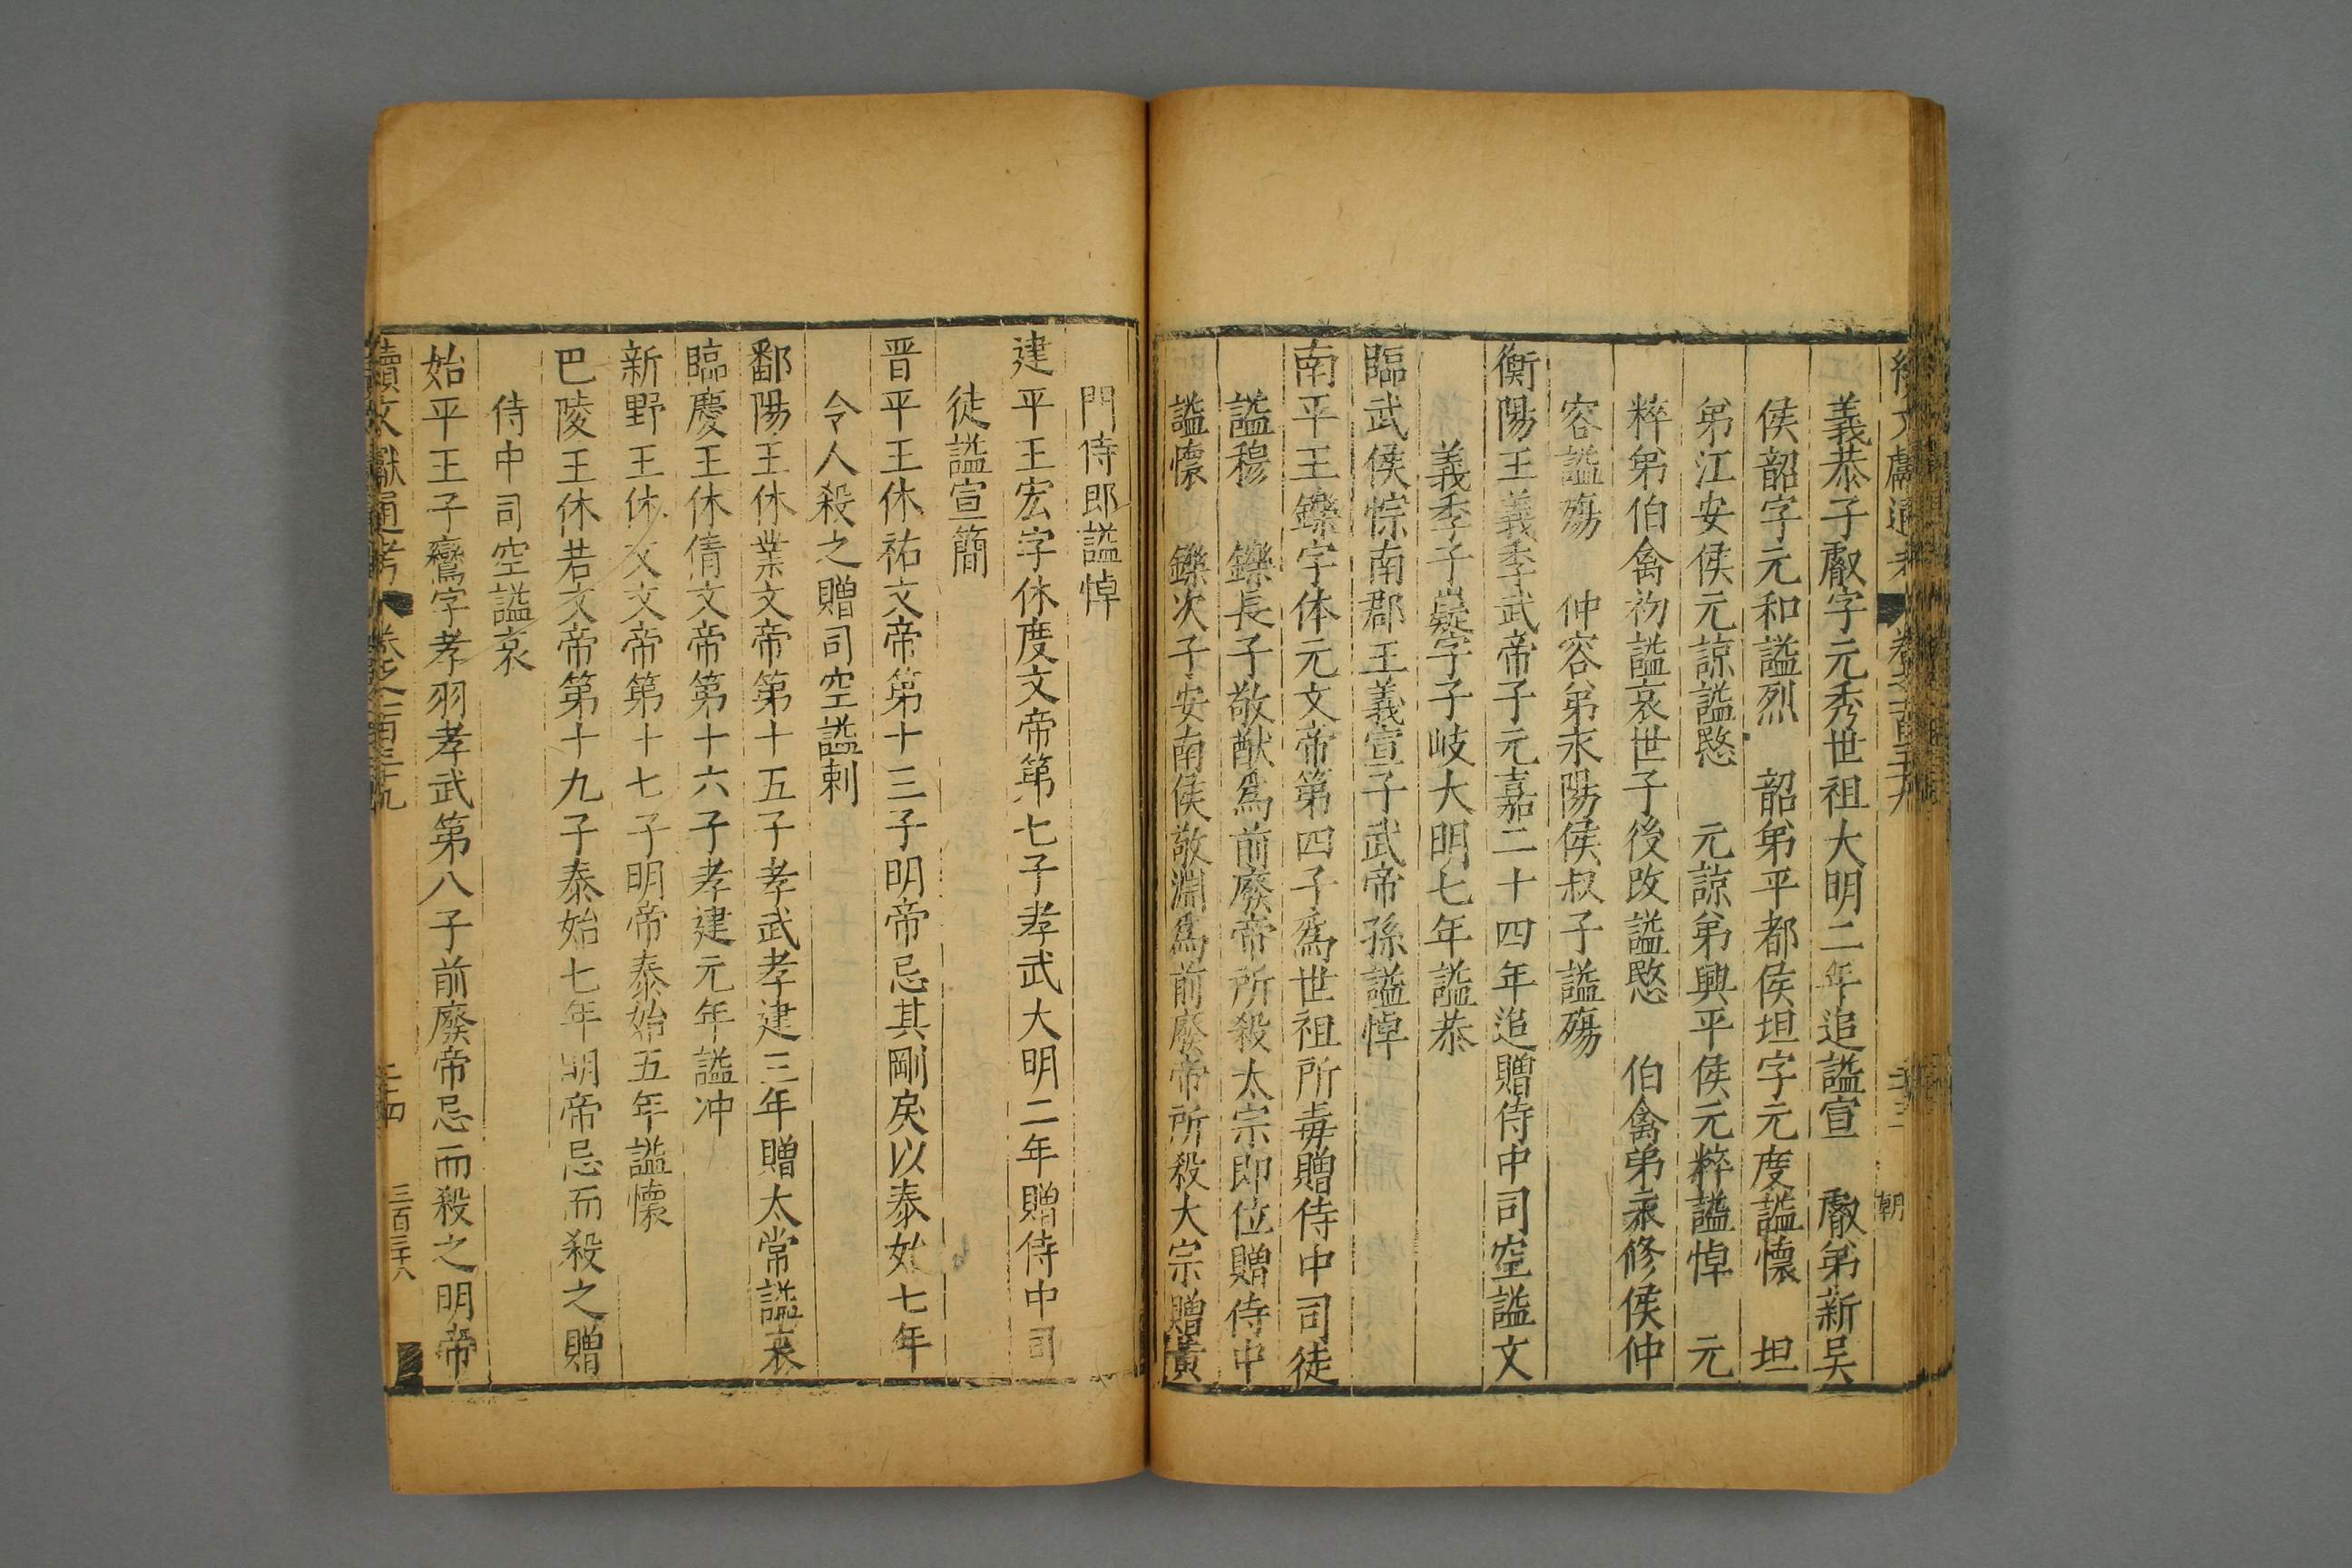 義恭子叡字元秀世祖大明二年追謚宣　叡弟新吴
侯韶字元和謚烈　韶弟平都侯坦字元度謚懷　坦
弟江安侯元諒謚愍　元諒弟興平侯元粹謚悼　元
粹弟伯禽初謚哀世子後改謚愍　伯禽弟永修侯仲
容謚殤　仲容弟永陽侯叔子謚殤
衡陽王義季武帝子元嘉二十四年追贈侍中司空謚文
義季子嶷字子岐大明七年謚恭
臨武侯悰南郡王義宣子武帝孫謚悼
南平王鑠字休元文帝第四子爲世祖所毒贈侍中司徒
謚穆　鑠長子敬猷爲前廢帝所殺太宗即位贈侍中
謚懷　鑠次子安南侯敬淵爲前廢帝所殺大宗贈黃
門侍郎謚悼
建平王宏字休度文帝第七子孝武大明二年贈侍中司
徒謚宣簡
晋平王休祐文帝第十三子明帝忌其剛戾以泰始七年
令人殺之贈司空謚剌
鄱陽王休業文帝第十五子孝武孝建三年贈太常謚哀
臨慶王休倩文帝第十六子孝建元年謚冲
新野王休父文帝第十七子明帝泰始五年謚懷
巴陵王休若文帝第十九子泰始七年明帝忌而殺之贈
侍中司空謚哀
始平王子鸞字孝羽孝武第八子前廢帝忌而殺之明帝
續文獻通考　卷之一百三十九　二十四　三百三十八